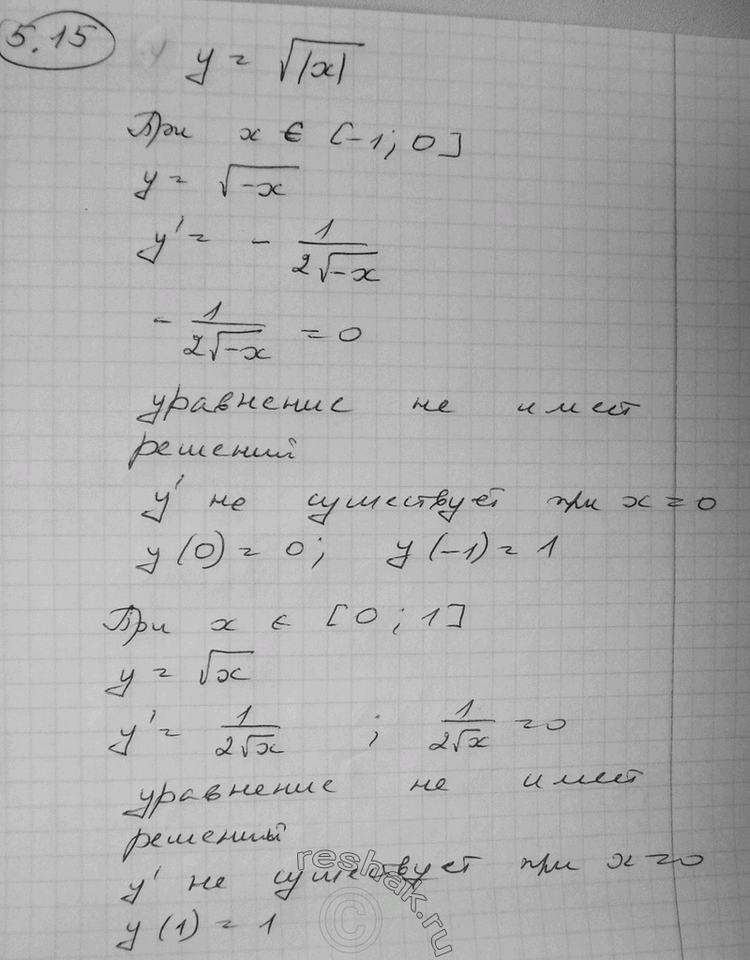 5.15
y = √|x|
При x ∈ [-1; 0]
y = √-x
y' = - 1/(2√-x)
- 1/(2√-x) = 0
уравнение не имеет
решений
y' не существует при x = 0
y(0) = 0; y(-1) = 1
При x ∈ [0; 1]
y = √x
y' = 1/(2√x) ; 1/(2√x) = 0
уравнение не имеет
решений
y' не существует при x = 0
y(1) = 1
reshak.ru
©